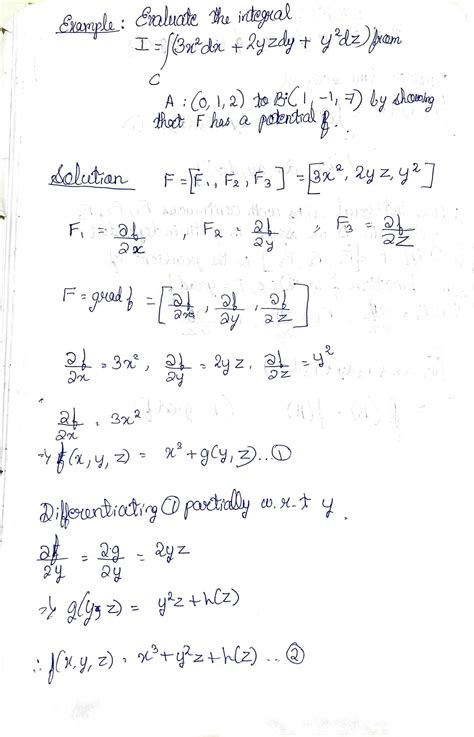 Example: Evaluate the integral
I = ∫(3x²dx + 2yzdy + y²dz) from
C
A : (0, 1, 2) to B:( 1, -1, 7) by showing
that F has a potential f.
Solution F = [F₁, F₂, F₃] = [3x², 2yz, y²]
F₁ = ∂f/∂x , F₂ = ∂f/∂y , F₃ = ∂f/∂z
F = grad f = [∂f/∂x, ∂f/∂y, ∂f/∂z]
∂f/∂x = 3x², ∂f/∂y = 2yz, ∂f/∂z = y²
∂f/∂x = 3x²
⇒ f(x, y, z) = x³ + g(y, z) .. ①
Differentiating ① partially w.r.t y.
∂f/∂y = ∂g/∂y = 2yz
⇒ g(y, z) = y²z + h(z)
∴ f(x, y, z) = x³ + y²z + h(z) .. ②